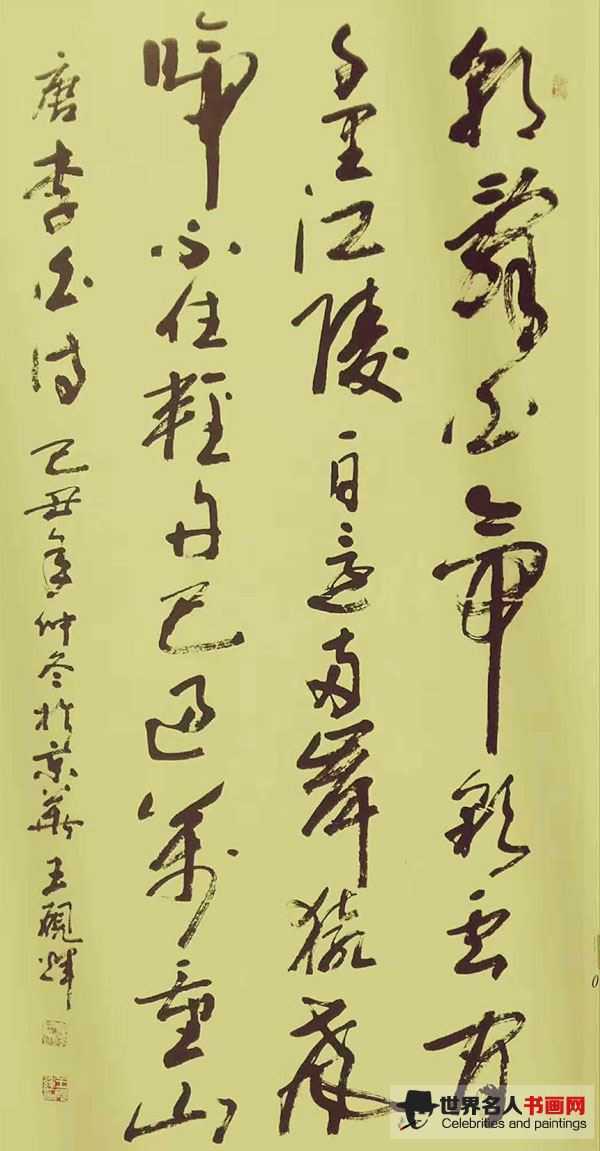 朝辭白帝彩云间
千里江陵一日還两岸猿聲
啼不住輕舟已過萬重山
唐李白诗 己丑年仲冬於京華王
世界名人书画网
Celebrities and paintings
0